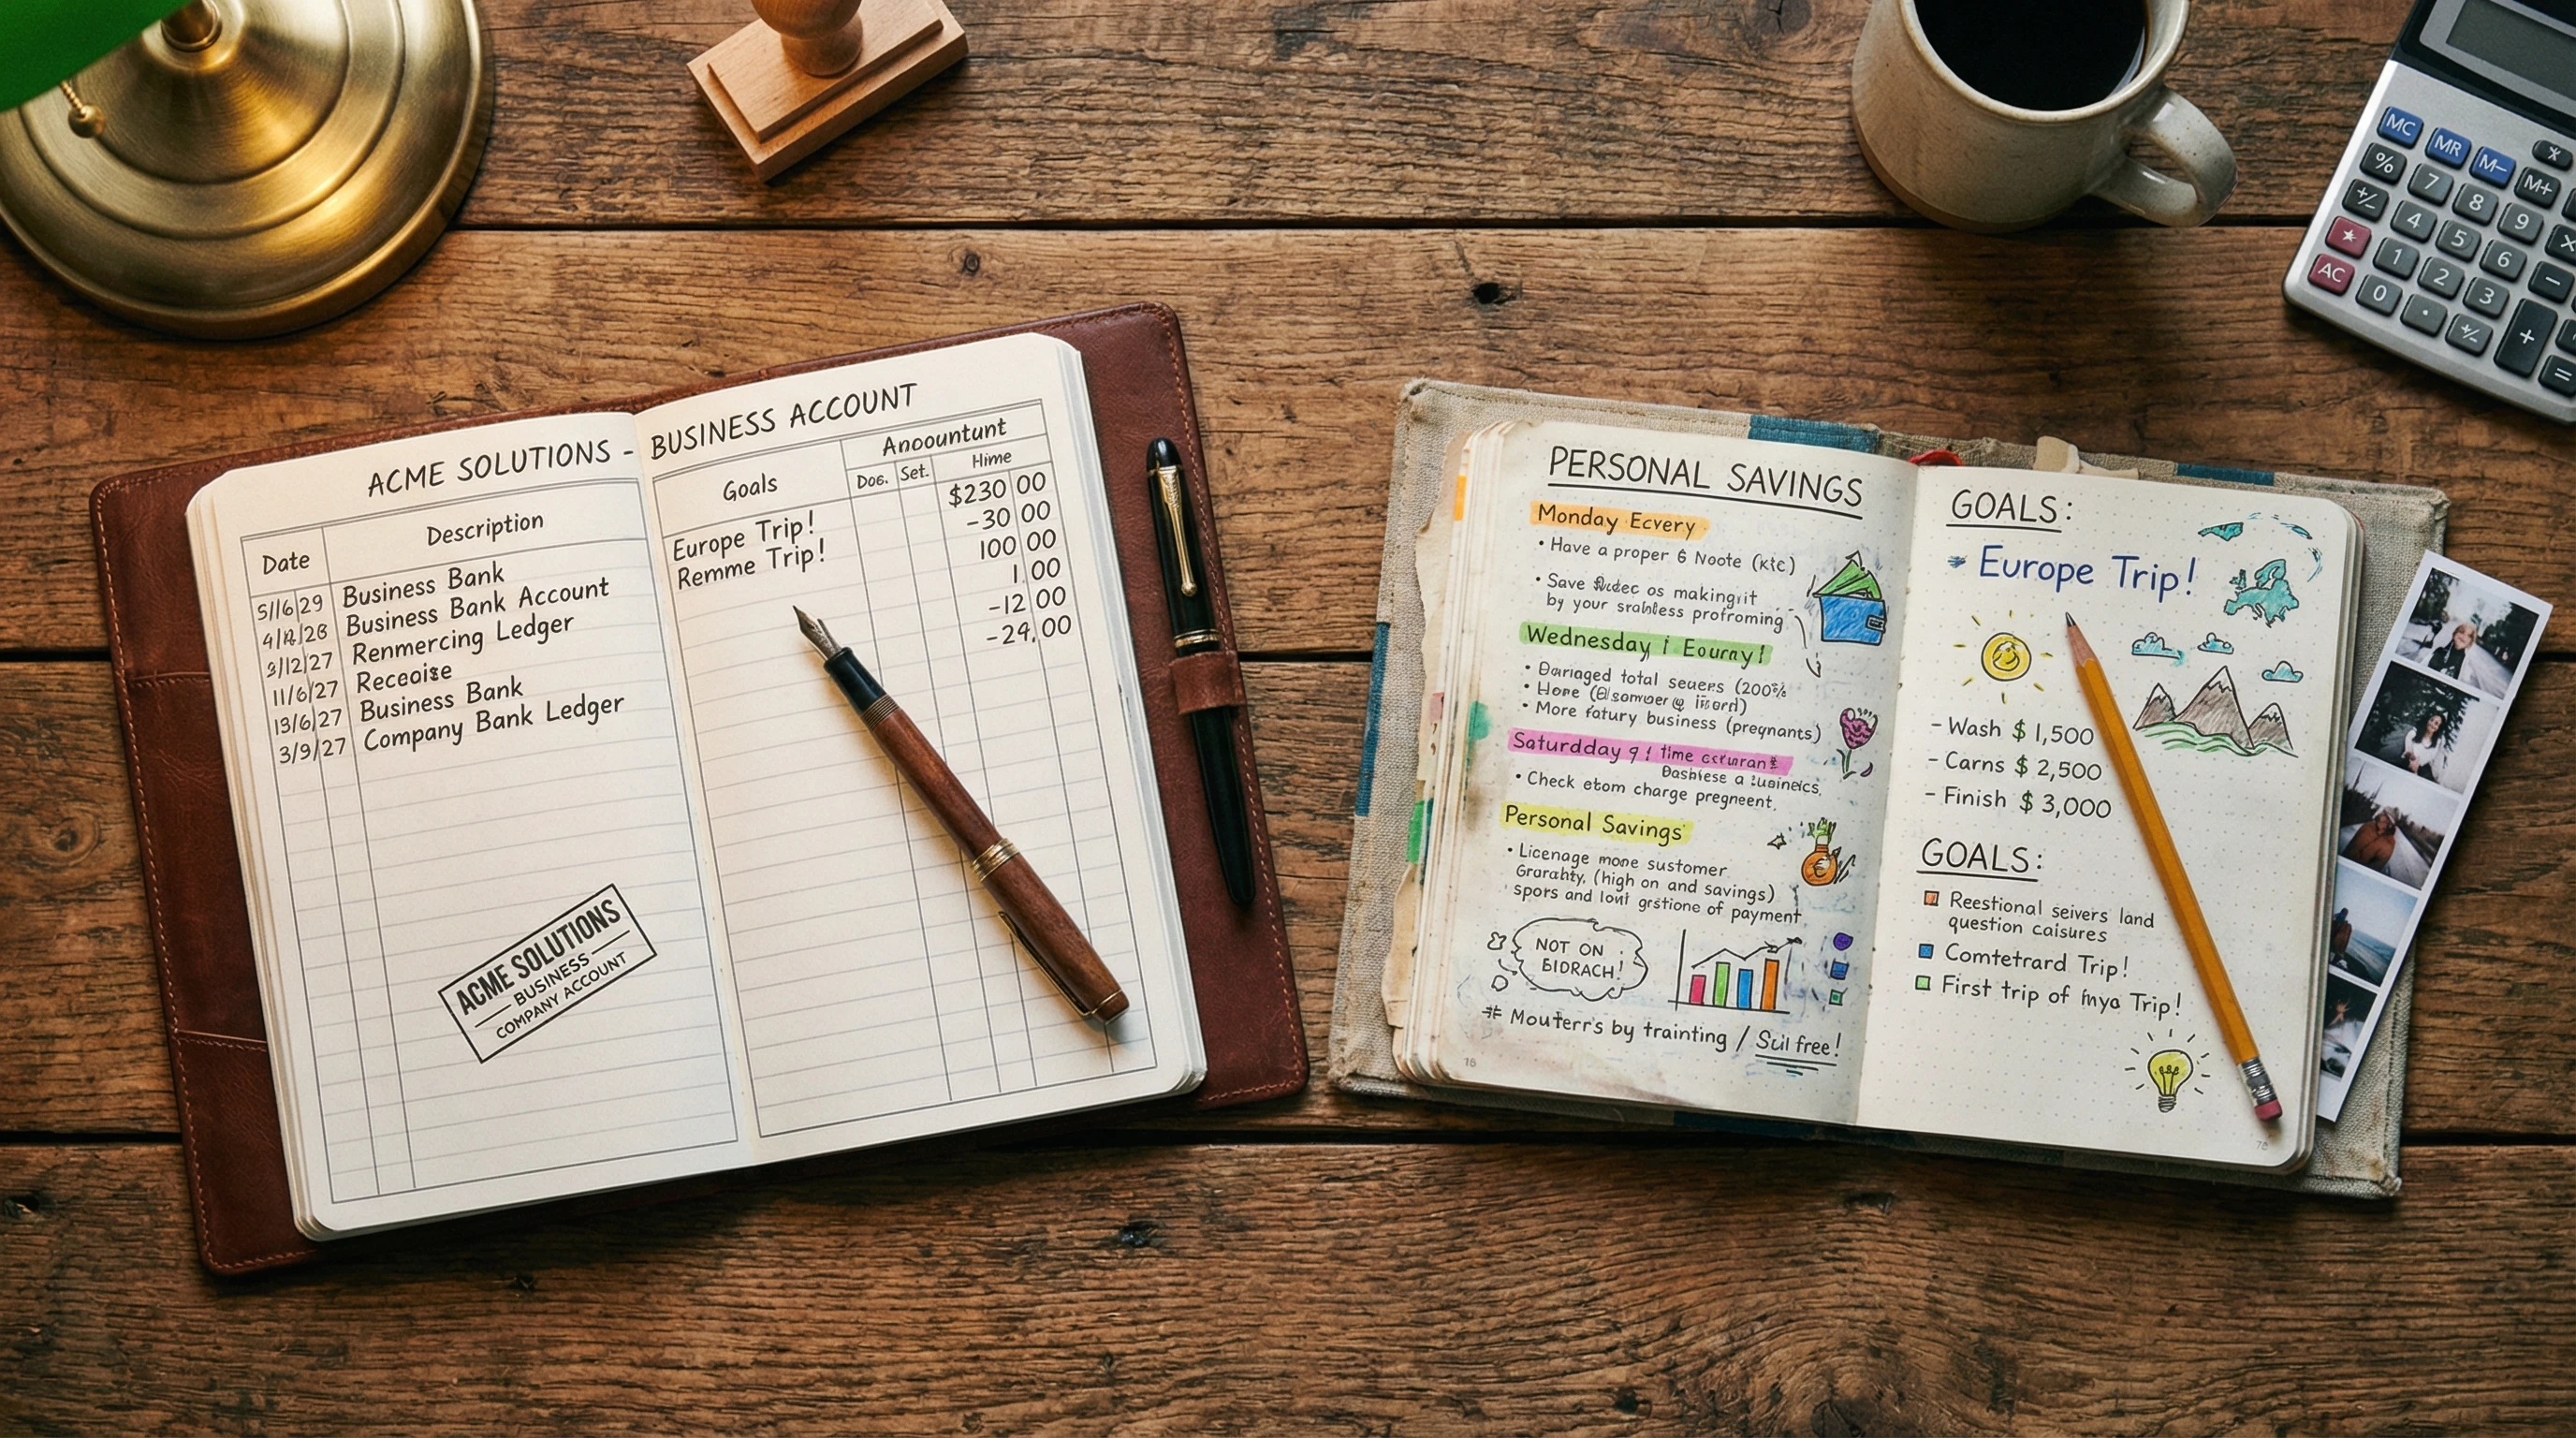 ACME SOLUTIONS - BUSINESS ACCOUNT
Date Description
5/16/29 Business Bank
4/ /28 Business Bank Account
3/12/27 Renmercing Ledger
11/6/27 Receoise
13/6/27 Business Bank
3/9/27 Company Bank Ledger
ACME SOLUTIONS
BUSINESS
COMPANY ACCOUNT
Goals Anoountunt
Doc. Set. Hime
Europe Trip! $230 00
Remme Trip! -30 00
100 00
1.00
-12 00
-24,00
PERSONAL SAVINGS
Monday Ecvery
• Have a proper 6 Noote (ktc)
• Save os making it
by your srabless profroming
Wednesday Eourny!
• Barraged total seuers (200%
• Hore
• More fatury business (preynants)
Saturdday 9 ! time
a
• Check etom charge pregneent.
Personal Savings
• Licenage mone sustomer
Grarahty, (high on and savings)
spors and lout grstione of payment
NOT ON
BIDRACH!
# Mouterr's by trainting / Scil free!
16
GOALS:
Europe Trip!
- Wash $ 1,500
- Carns $ 2,500
- Finish $ 3,000
GOALS:
Reestional seivers land
question caisures
Comtetrard Trip!
First trip of Inya Trip!
MC MR M- M+
% 7 8 9
+/- 4 5 6 ×
1 2 3 −
AC 0 . +/- + =